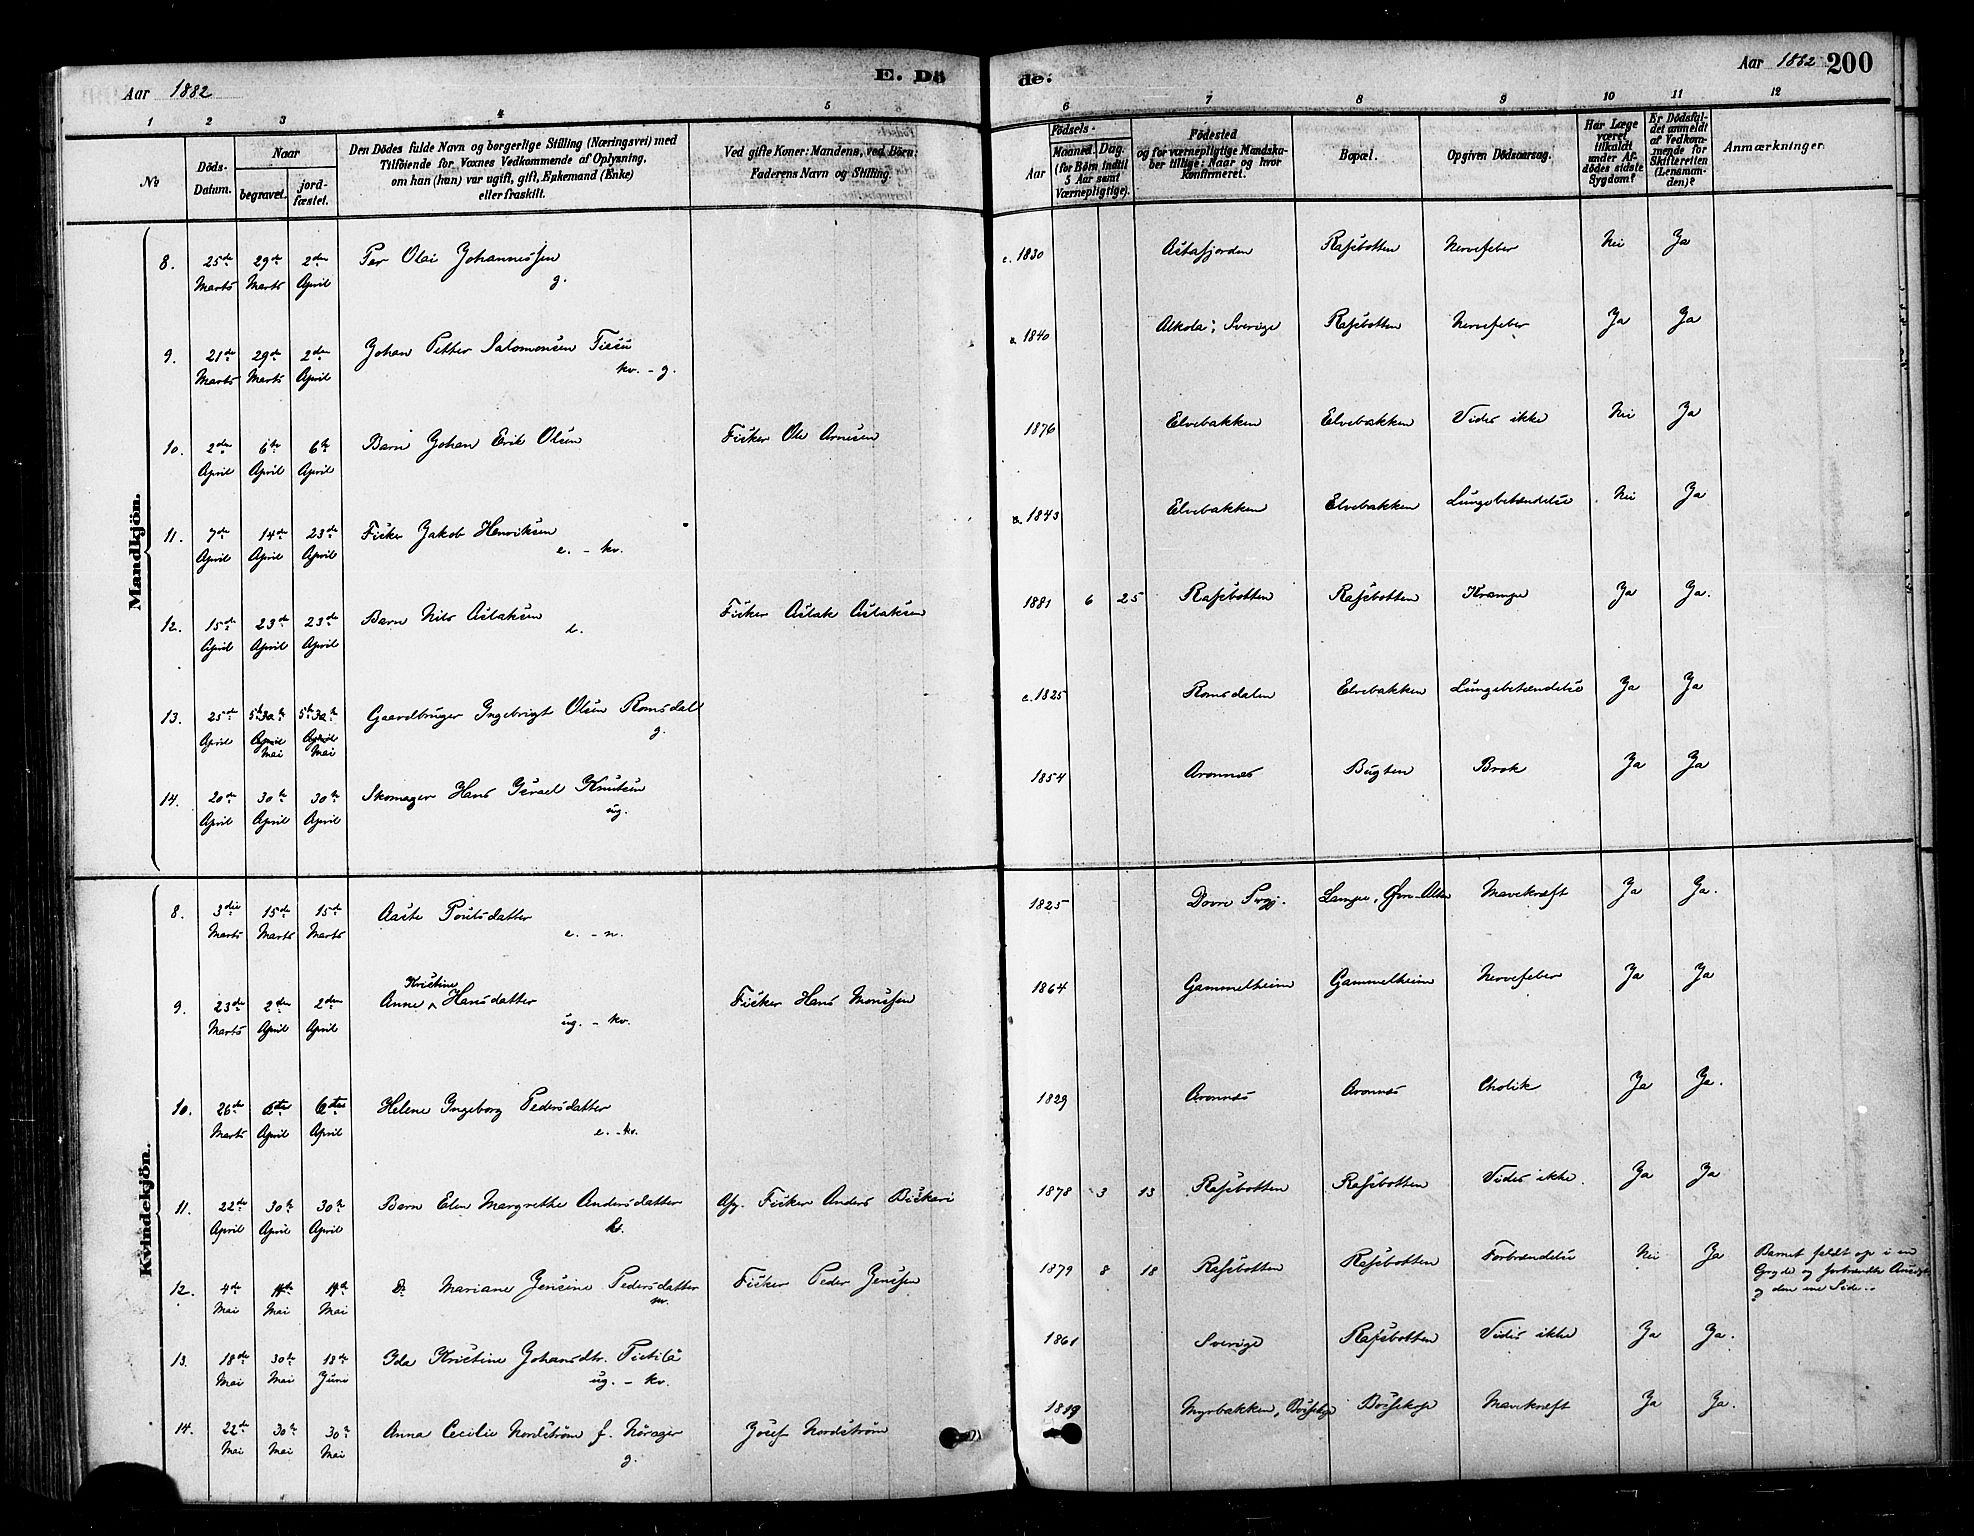 Aar 1882
E. Dö
de:
Aar 1882 200
1 2 3 4 5 6
6 7 8 9 10 11 12
No
Döds-Datum.
Naar
begravet.
jord-fæstet.
Den Dödes fulde Navn og borgerlige Stilling (Næringsvei) med
Tilföiende for Voxnes Vedkommende af Oplysning,
om han (hun) var ugift, gift, Enkemand (Enke)
eller fraskilt.
Ved gifte Koner: Mandens, ved Börn:
Faderens Navn og Stilling.
Födsels-
Aar
Maaned. Dag.
(for Børn indtil
5 Aar samt
Værnepligtige).
Födested
og for værnepligtige Mandska-
ber tillige: Naar og hvor
Konfirmeret.
Bopæl.
Opgiven Dödsaarsag.
Har Læge
været
tilkaldt
under Af-
dödes sidste
Sygdom?
Er Dödsfal-
det anmeldt
af Vedkom-
mende for
Skifteretten
(Lensman-
den)?
Anmærkninger.
Mandkjön.
8. 25de Marts 29de Marts 2den April Per Olai Johannessen g. c. 1830 Astafjorden Rafsbotten Nervefeber Nei Ja
9. 21de Marts 29de Marts 2den April Johan Petter Salomonsen kv. - g. 1840 Sverige Rafsbotten Nervefeber Ja Ja
10. 2den April 6te April 6te April Barn Johan Erik Olsen Fisker Ole Arnesen 1876 Elvebakken Elvebakken Vides ikke Nei Ja
11. 7de April 14de April 23de April Fisker Jakob Henriksen e. - kv. 1843 Elvebakken Elvebakken Lungebetændelse Nei Ja
12. 15de April 23de April 23de April Barn Nils Aslaksen Fisker Aslak Aslaksen 1881 6 25 Rafsbotten Rafsbotten Krampe Ja Ja.
13. 25de April 5te 30te April Mai 5te 30te April Mai Gaardbruger Ingebrigt Olsen Romsdal g. c. 1825 Romsdalen Elvebakken Lungebetændelse Ja Ja
14. 20de April 30te April 30te April Skomager Hans Israel Knutsen ug. 1854 Aronnæs Bugten Brok Ja Ja
Kvindekjön.
8. 3die Marts 15de Marts 15de Marts Aaste Poulsdatter e. - n. 1825 Dovre Prgj. Lampe, Øvre-Alten Mavekræft Ja Ja.
9. 23de Marts 2den April 2den April Anne Kristine Hansdatter ug. - kv. Fisker Hans Monsen 1864 Gammelheim Gammelheim Nervefeber Ja Ja
10. 26de Marts 6te April 6te April Helene Ingeborg Pedersdatter e. - kv. 1829 Aronnæs Aronnæs Cholik Ja Ja.
11. 22de April 30te April 30te April Barn Elen Margrethe Andersdatter kv. Afg. Fisker Anders Biskari 1878 3 13 Rafsbotten Rafsbotten Vides ikke. Ja Ja
12. 4de Mai Mai Mai Do Mariane Jensine Pedersdatter Fisker Peder Jenssen 1879 8 18 Rafsbotten Rafsbotten Forbrændelse Nei Ja Barnet faldt op i en
Gryde og forbrændte Ansigt
og den ene Side.
13. 18de Mai 30te Mai 18de Juni Ida Kristine Johansdtr. Pietilä ug. - kv. 1861 Sverige Rafsbotten Vides ikke Ja Ja.
14. 22de Mai 30te Mai 30te Mai Anna Cecilie Nordström f. Nörager g. Josef Nordström 1819 Myrbakken, Bossekop Mavekræft Ja Ja.